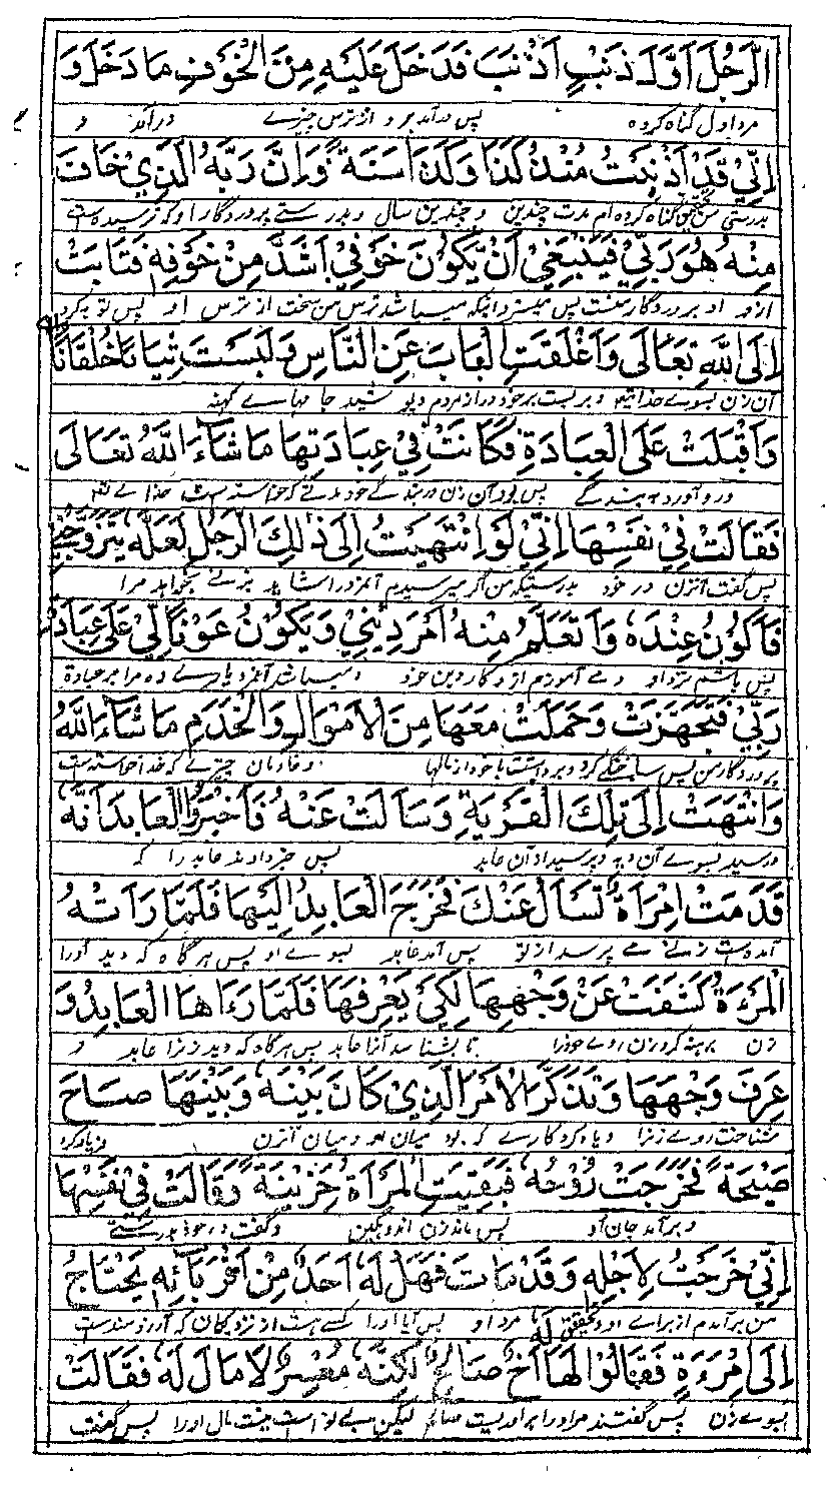 الرَّجُلَ اَوَّلَ ذَنْبٍ اَذْنَبَ فَدَخَلَ عَلَيْهِ مِنَ الْخَوْفِ مَا دَخَلَ وَ
مرد اول گناه کرده پس درآمد بر و از ترس چیزے درآمد و
اِنِّيْ قَدْ اَذْنَبْتُ مُنْذُ كَذَا وَكَذَا سَنَةً وَاِنَّ رَبَّهُ الَّذِيْ خَافَ
بدرستی من تحقیق گناه کرده ام مدت چندین و چندین سال و بدرستے پروردگار او که ترسیده است
مِنْهُ هُوَ رَبِّيْ فَيَنْبَغِيْ اَنْ يَّكُوْنَ خَوْفِيْ اَشَدَّ مِنْ خَوْفِهٖ فَتَابَتْ
ازو او پروردگار منست پس میسزد اینکه میباشد ترس من سخت از ترس او پس توبه کرد
اِلَى اللّٰهِ تَعَالٰى وَاَغْلَقَتِ الْبَابَ عَنِ النَّاسِ وَلَبِسَتْ ثِيَابًا خُلْقَانًا
آن زن بسوے خدایتع و بربست بر خود در از مردم و پوشید جامهاے کهنه
وَاَقْبَلَتْ عَلَى الْعِبَادَةِ فَكَانَتْ فِيْ عِبَادَتِهَا مَا شَاءَ اللّٰهُ تَعَالٰى
و رو آورد به بندگے پس بود آن زن در بندگے خود مدتے که خواسته است خداے تع
فَقَالَتْ فِيْ نَفْسِهَا اِنِّيْ لَوِ انْتَهَيْتُ اِلٰى ذٰلِكَ الرَّجُلِ لَعَلَّهٗ يَتَزَوَّجُنِيْ
پس گفت آنزن در خود بدرستیکه من اگر میرسیدم آنمرد را شاید بزنے بخواهد مرا
فَاَكُوْنُ عِنْدَهٗ وَاَتَعَلَّمُ مِنْهُ اَمْرَ دِيْنِيْ وَيَكُوْنُ عَوْنًا لِّيْ عَلٰى عِبَادَةِ
پس باشم نزد او و مے آموزم ازو کار دین خود و میباشد آنمرد یارے ده مرا بر عبادة
رَبِّيْ فَتَجَهَّزَتْ وَحَمَلَتْ مَعَهَا مِنَ الْاَمْوَالِ وَالْخَدَمِ مَا شَاءَ اللّٰهُ
پروردگار من پس ساختگے کرد و برداشت با خود از مالها و خادمان چیزے که خدا خواسته است
وَانْتَهَتْ اِلٰى تِلْكَ الْقَرْيَةِ وَسَاَلَتْ عَنْهُ فَاَخْبَرُوا الْعَابِدَ اَنَّهٗ
و رسید بسوے آن ده و پرسید از آن عابد پس خبر دادند عابد را که
قَدِمَتْ اِمْرَاَةٌ تَسْاَلُ عَنْكَ فَخَرَجَ الْعَابِدُ اِلَيْهَا فَلَمَّا رَاَتْهُ
آمده ست زنے مے پرسد از تو پس آمد عابد بسوے او پس هرگاه که دید او را
الْمَرْءَةُ كَشَفَتْ عَنْ وَجْهِهَا لِكَيْ يَعْرِفَهَا فَلَمَّا رَءَاهَا الْعَابِدُ وَ
زن برهنه کرد زن روے خود را تا بشناسد آنرا عابد پس هرگاه که دید زنرا عابد و
عَرَفَ وَجْهَهَا وَتَذَكَّرَ الْاَمْرَ الَّذِيْ كَانَ بَيْنَهٗ وَبَيْنَهَا صَاحَ
شناخت روے زنرا و یاد کرد کارے که بود میان او و میان آنزن فریاد کرد
صَيْحَةً فَخَرَجَتْ رُوْحُهٗ فَبَقِيَتِ الْمَرْاَةُ حَزِيْنَةً وَقَالَتْ فِيْ نَفْسِهَا
و برآمد جان او پس ماند زن اندوهگین و گفت در خود بدرستے
اِنِّيْ خَرَجْتُ لِاَجْلِهٖ وَقَدْ مَاتَ فَهَلْ لَهٗ اَحَدٌ مِنْ اَقْرِبَائِهٖ يَحْتَاجُ
من برآمدم از براے او و تحقیق مرد او پس آیا او را کسے هست از نزدیکان که آرزومندست
اِلَى امْرَءَةٍ فَقَالُوْا لَهَا لَهٗ اَخٌ صَالِحٌ لٰكِنَّهٗ مُعْسِرٌ لَا مَالَ لَهٗ فَقَالَتْ
بسوے زن پس گفتند مر او را برادریست صالح لیکن بینوا است نیست مال او را پس گفت